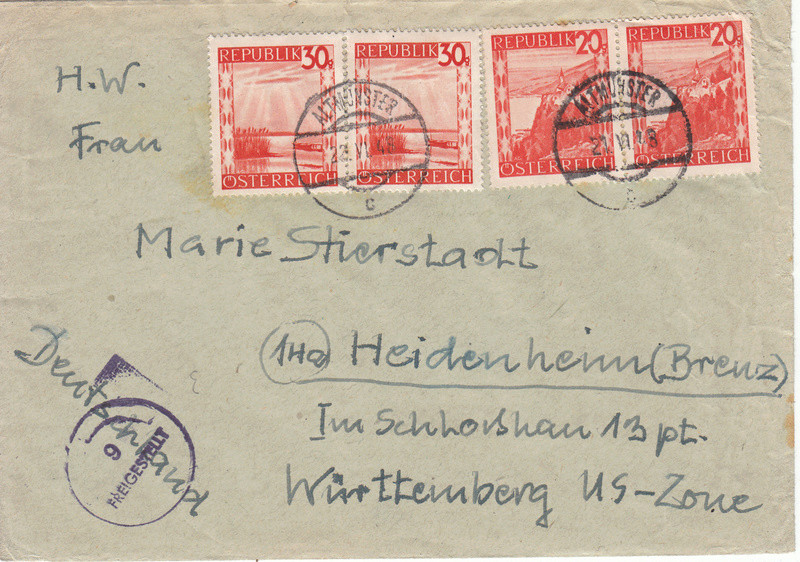 REPUBLIK 30g
REPUBLIK 30g
REPUBLIK 20g
REPUBLIK 20g
ÖSTERREICH
ÖSTERREICH
ÖSTERREICH
ÖSTERREICH
ALTMÜNSTER
c
ALTMÜNSTER
21.VI.48
H.W.
Frau
Marie Stierstadt
14a Heidenheim (Brenz)
Im Schloßhau 13 pt.
Württemberg US-Zone
Deutschland
9
FREIGESTELLT